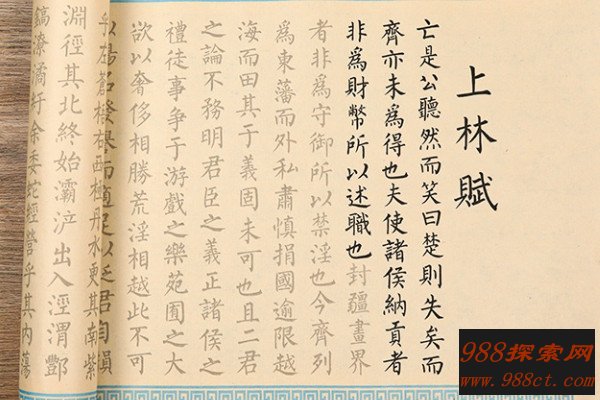 上林賦
亡是公聽然而笑曰楚則失矣而
齊亦未為得也夫使諸侯納貢者
非為財幣所以述職也封疆畫界
者非為守御所以禁淫也今齊列
為東藩而外私肅慎捐國逾限越
海而田其于義固未可也且二君
之論不務明君臣之義正諸侯之
禮徒事爭于游戲之樂苑囿之大
欲以奢侈相勝荒淫相越此不可
而適足以君自
西極丹水更其南紫
淵徑其北終始灞滻出入涇渭酆
鎬潦潏紆余委蛇經營乎其內蕩
988探索网
www.988ct.com